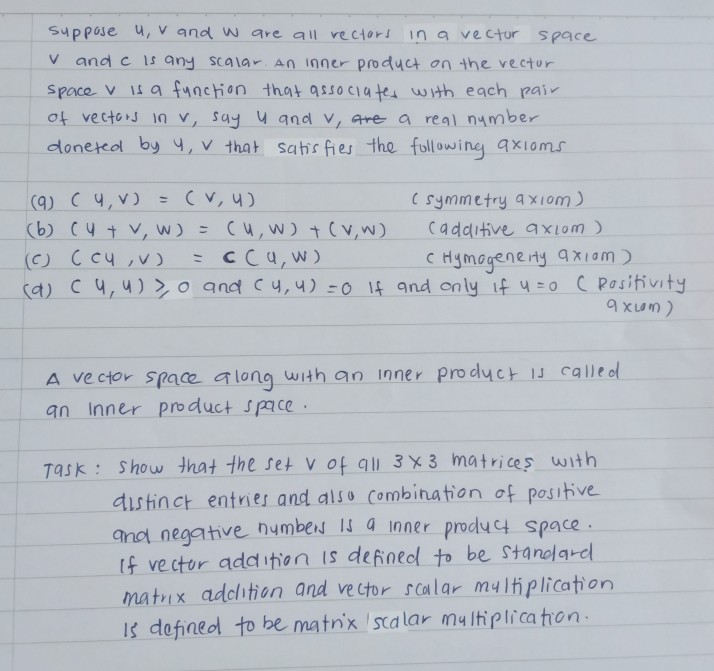 suppose u, v and w are all vectors in a vector space
v and c is any scalar. An inner product on the vector
space v is a function that associates with each pair
of vectors in v, say u and v, are a real number
doneted by u, v that satisfies the following axioms
(a) (u, v) = (v, u) (symmetry axiom)
(b) (u + v, w) = (u, w) + (v, w) (additive axiom)
(c) (cu, v) = c(u, w) (Hymogeneity axiom)
(d) (u, u) ≥ 0 and (u, u) = 0 if and only if u = 0 (Positivity
axiom)
A vector space along with an inner product is called
an inner product space.
Task: show that the set v of all 3 x 3 matrices with
distinct entries and also combination of positive
and negative numbers is a inner product space.
If vector addition is defined to be standard
matrix addition and vector scalar multiplication
is defined to be matrix scalar multiplication.